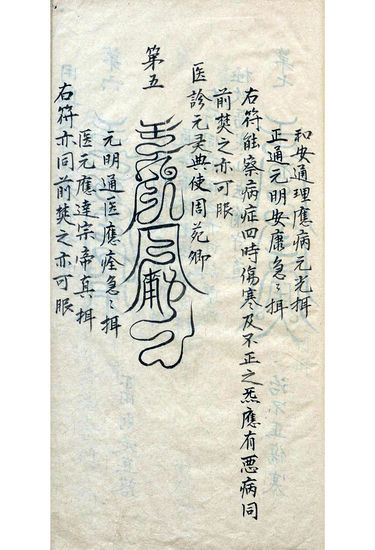 和安通理應病元光揖
正通元明安康急〻揖
右符能察病症四時傷寒及不正之炁應有惡病同
前焚之亦可服
医診元灵典使周苑卿
第五
元明通医應痊急〻揖
医元應達宗帝真揖
右符亦同前焚之亦可服